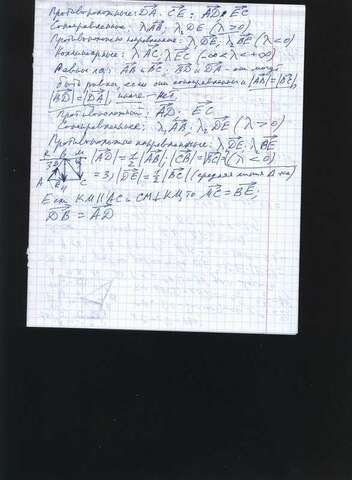 Противоположные: DA и CE; AD и EC
Сонаправленные: λ AB, λ DE (λ > 0)
Противоположно направленные: λ DE, λ BE (λ < 0)
λ AC, λ EC (-∞ < λ < +∞)
Равны ли: AB и BC; AD и DA - они могут
быть равны, если они сонаправлены и |AB| = |BC|,
|AD| = |DA|, иначе - нет.
Противоположные: AD и EC
Сонаправленные: λ₁ AB, λ₂ DE (λ > 0)
Противоположно направленные: λ DE, λ BE
K B M |AD| = 1/2 |AB|; |CB| = (λ < 0)
A C = 3) |DE| = 1/2 |BC| (средняя линия Δ-ка)
Если KM || AC и CM ⊥ KM, то AC = BE;
DB = AD